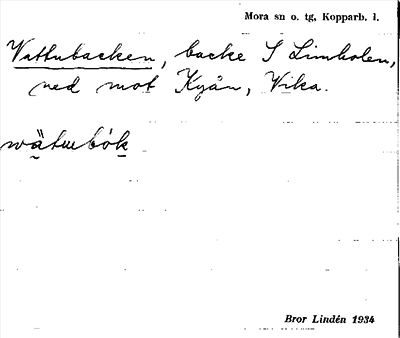 Mora sn o. tg, Kopparb. l.
Vattubacken, backe S Limbolen,
ned mot Kyån, Vika.
wätubök
Bror Lindén 1934